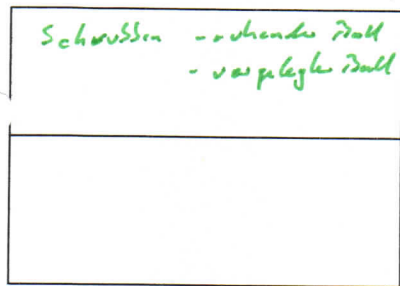 Schrubben - ruhender Ball
- vorgelegter Ball